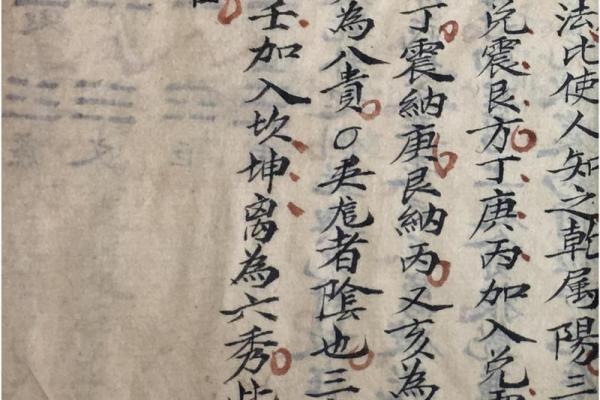 法比使人知之乾属陽三
兑震艮方丁庚丙加入兑
丁震納庚艮納丙又亥為
為八貴○英尨者陰也三
壬加入坎坤离為六秀此